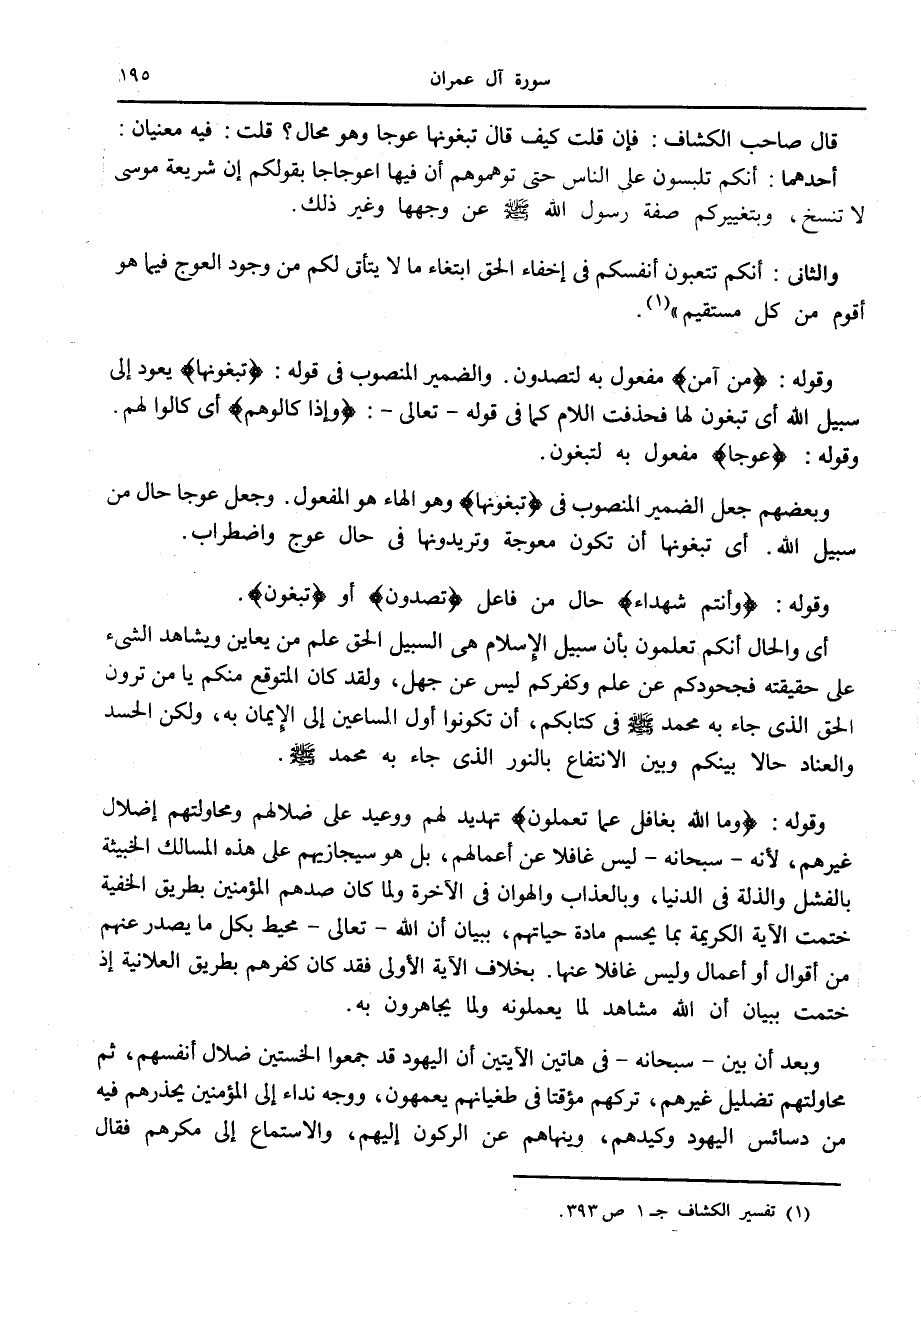 سورة آل عمران ١٩٥
قال صاحب الكشاف : فإن قلت كيف قال تبغونها عوجا وهو محال؟ قلت : فيه معنيان :
أحدهما : أنكم تلبسون على الناس حتى توهموهم أن فيها اعوجاجا بقولكم إن شريعة موسى
لا تنسخ، وبتغييركم صفة رسول الله ﷺ عن وجهها وغير ذلك.
والثانى : أنكم تتعبون أنفسكم فى إخفاء الحق ابتغاء ما لا يتأتى لكم من وجود العوج فيما هو
أقوم من كل مستقيم»(١).
وقوله : ﴿من آمن﴾ مفعول به لتصدون. والضمير المنصوب فى قوله : ﴿تبغونها﴾ يعود إلى
سبيل الله أى تبغون لها فحذفت اللام كما فى قوله - تعالى - : ﴿وإذا كالوهم﴾ أى كالوا لهم.
وقوله : ﴿عوجا﴾ مفعول به لتبغون.
وبعضهم جعل الضمير المنصوب فى ﴿تبغونها﴾ وهو الهاء هو المفعول. وجعل عوجا حال من
سبيل الله. أى تبغونها أن تكون معوجة وتريدونها فى حال عوج واضطراب.
وقوله : ﴿وأنتم شهداء﴾ حال من فاعل ﴿تصدون﴾ أو ﴿تبغون﴾.
أى والحال أنكم تعلمون بأن سبيل الإسلام هى السبيل الحق علم من يعاين ويشاهد الشىء
على حقيقته فجحودكم عن علم وكفركم ليس عن جهل، ولقد كان المتوقع منكم يا من ترون
الحق الذى جاء به محمد ﷺ فى كتابكم، أن تكونوا أول المساعين إلى الإيمان به، ولكن الحسد
والعناد حالا بينكم وبين الانتفاع بالنور الذى جاء به محمد ﷺ.
وقوله : ﴿وما الله بغافل عما تعملون﴾ تهديد لهم ووعيد على ضلالهم ومحاولتهم إضلال
غيرهم، لأنه - سبحانه - ليس غافلا عن أعمالهم، بل هو سيجازيهم على هذه المسالك الخبيثة
بالفشل والذلة فى الدنيا، وبالعذاب والهوان فى الآخرة ولما كان صدهم المؤمنين بطريق الخفية
ختمت الآية الكريمة بما يحسم مادة حياتهم، ببيان أن الله - تعالى - محيط بكل ما يصدر عنهم
من أقوال أو أعمال وليس غافلا عنها. بخلاف الآية الأولى فقد كان كفرهم بطريق العلانية إذ
ختمت ببيان أن الله مشاهد لما يعملونه ولما يجاهرون به.
وبعد أن بين - سبحانه - فى هاتين الآيتين أن اليهود قد جمعوا الخستين ضلال أنفسهم، ثم
محاولتهم تضليل غيرهم، تركهم مؤقتا فى طغيانهم يعمهون، ووجه نداء إلى المؤمنين يحذرهم فيه
من دسائس اليهود وكيدهم، وينهاهم عن الركون إليهم، والاستماع إلى مكرهم فقال
(١) تفسير الكشاف جـ ١ ص ٣٩٣.